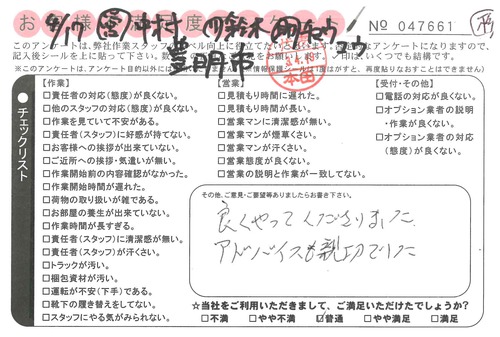 お 様 足度 ケ
No 047661
4/17 中村 鈴木
豊明市
このアンケートは、弊社作業スタッフ
記入後シールを上に貼って下さい。
※このアンケートは、アンケート目的以外に
【作業】
□責任者の対応(態度)が良くない。
□他のスタッフの対応(態度)が良くない。
□作業を見ていて不安がある。
□責任者(スタッフ)に好感が持てない。
□お客様への挨拶が出来ていない。
□ご近所への挨拶・気遣いが無い。
□作業開始前の内容確認がなかった。
□作業開始時間が遅れた。
□荷物の取り扱いが雑である。
□お部屋の養生が出来ていない。
□作業時間が長すぎる。
□責任者(スタッフ)に清潔感が無い。
□責任者(スタッフ)が汗くさい。
□トラックが汚い。
□梱包資材が汚い。
□運転が不安(下手)である。
□靴下の履き替えをしてない。
□スタッフにやる気がみられない。
【営業】
□見積もり時間に遅れた。
□見積もり時間が長い。
□営業マンに清潔感が無い。
□営業マンが煙草くさい。
□営業マンが汗くさい。
□営業態度が良くない。
□営業の説明と作業が一致してない。
【受付・その他】
□電話の対応が良くない。
□オプション業者の説明
・作業が良くない。
□オプション業者の対応
(態度)が良くない。
チェックリスト
その他、ご意見・ご要望等ありましたらお書き下さい。
良くやってくださいました
アドバイスも親切でした
☆当社をご利用いただきまして、ご満足いただけたでしょうか?
□不満 □やや不満 □普通 □やや満足 □満足